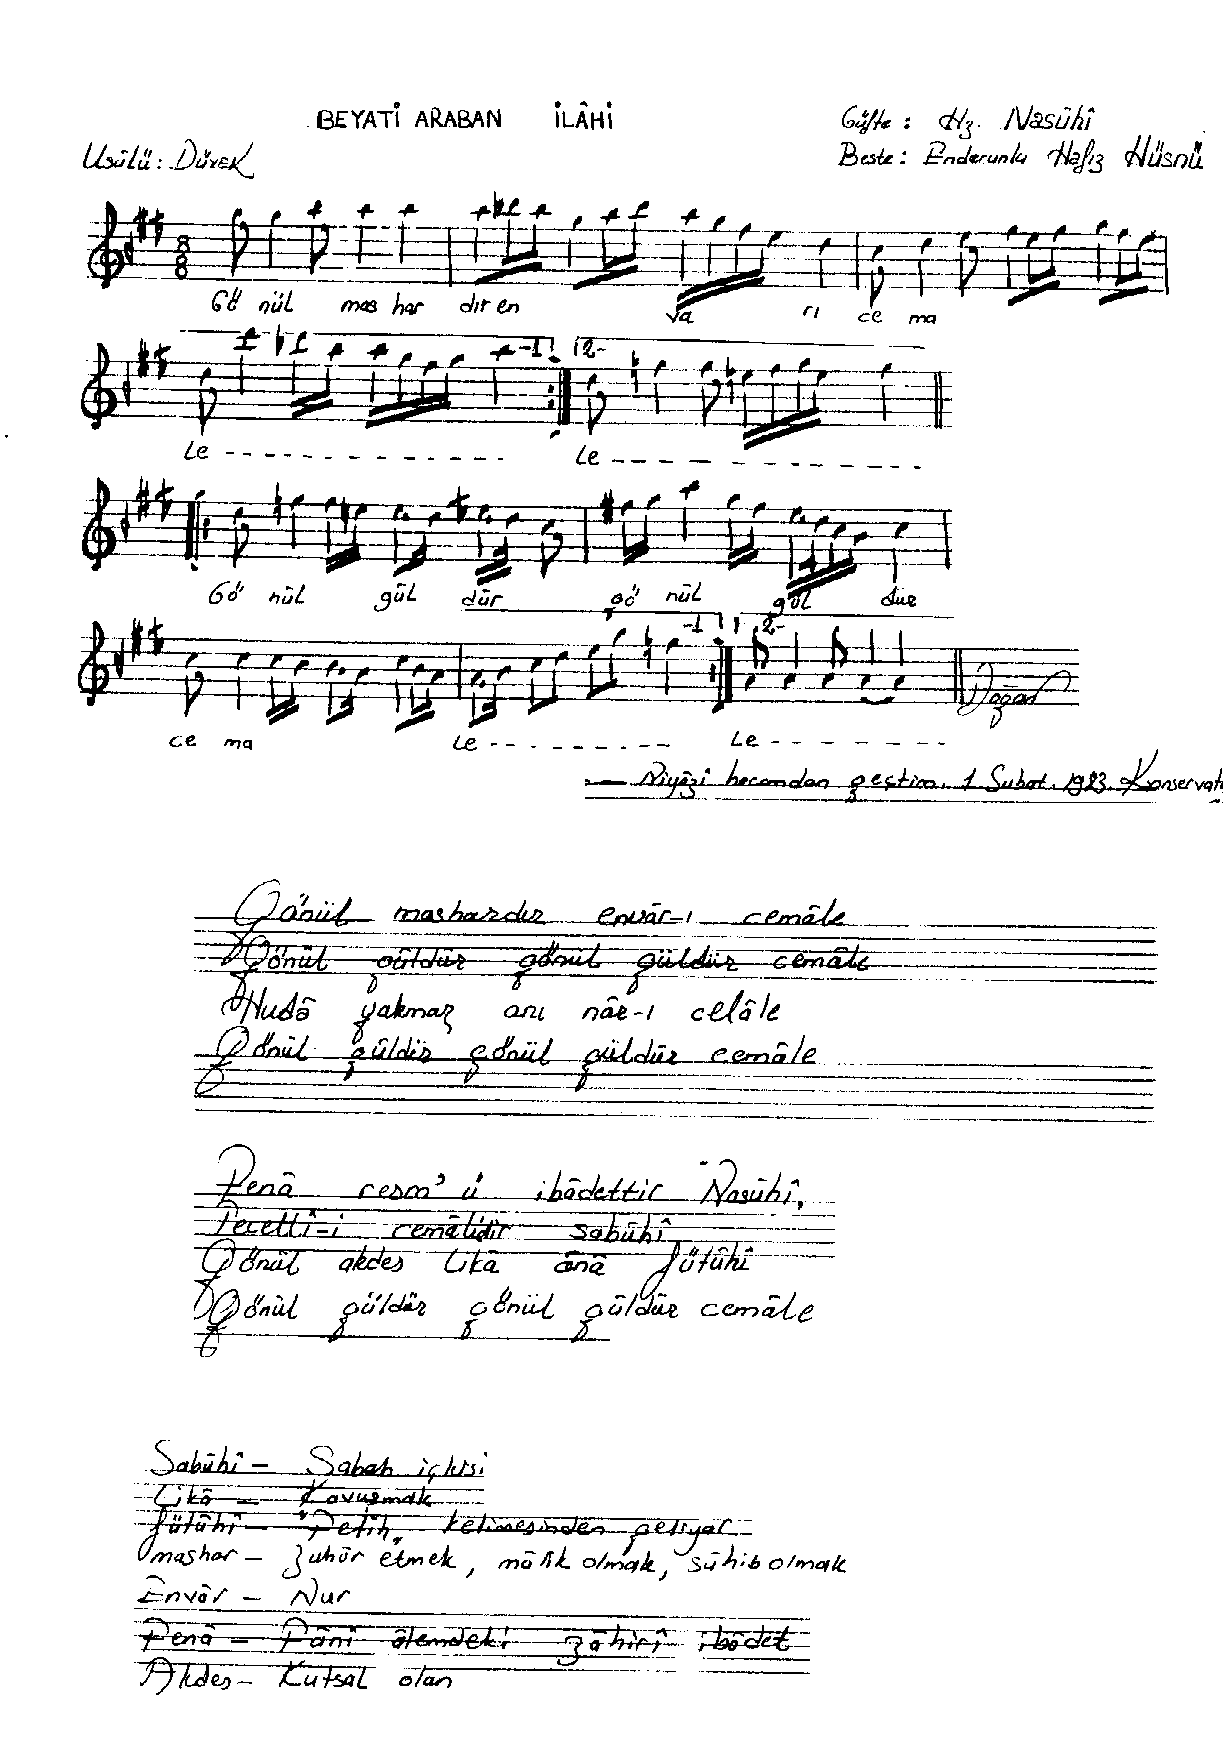 BEYATİ ARABAN İLÂHİ
Güfte : Hz. Nasûhî
Usûlü : Düyek
Beste : Enderunlu Hafız Hüsnü
8
8
Gö nül maz har dır en va rı ce ma
-1- 2-
le - - - - - - - - - - - - - le - - - - - - - - - - -
Gö nül gül dür gö nül gül dür
-1- 2-
ce ma le - - - - - - - - - le - - - - - - -
Doğan
— Niyâzi hocamdan geçtim. 1 Şubat. 1983. Konservat
Gönül mazhardır envâr-ı cemâle
Gönül güldür gönül güldür cemâle
Hudâ yakmaz anı nâr-ı celâle
Gönül güldür gönül güldür cemâle
Fenâ resm'ü ibâdettir Nasûhî,
Tecellî-i cemâlidir sabûhî
Gönül akdes likâ ânâ fütûhî
Gönül güldür gönül güldür cemâle
Sabûhî — Sabah içkisi
Likâ — Kavuşmak
fütûhî — "Fetih" kelimesinden geliyor
mazhar — Zuhûr etmek, mâlik olmak, sâhib olmak
Envâr — Nur
Fenâ — Fânî âlemdeki zâhirî ibâdet
Akdes — Kutsal olan